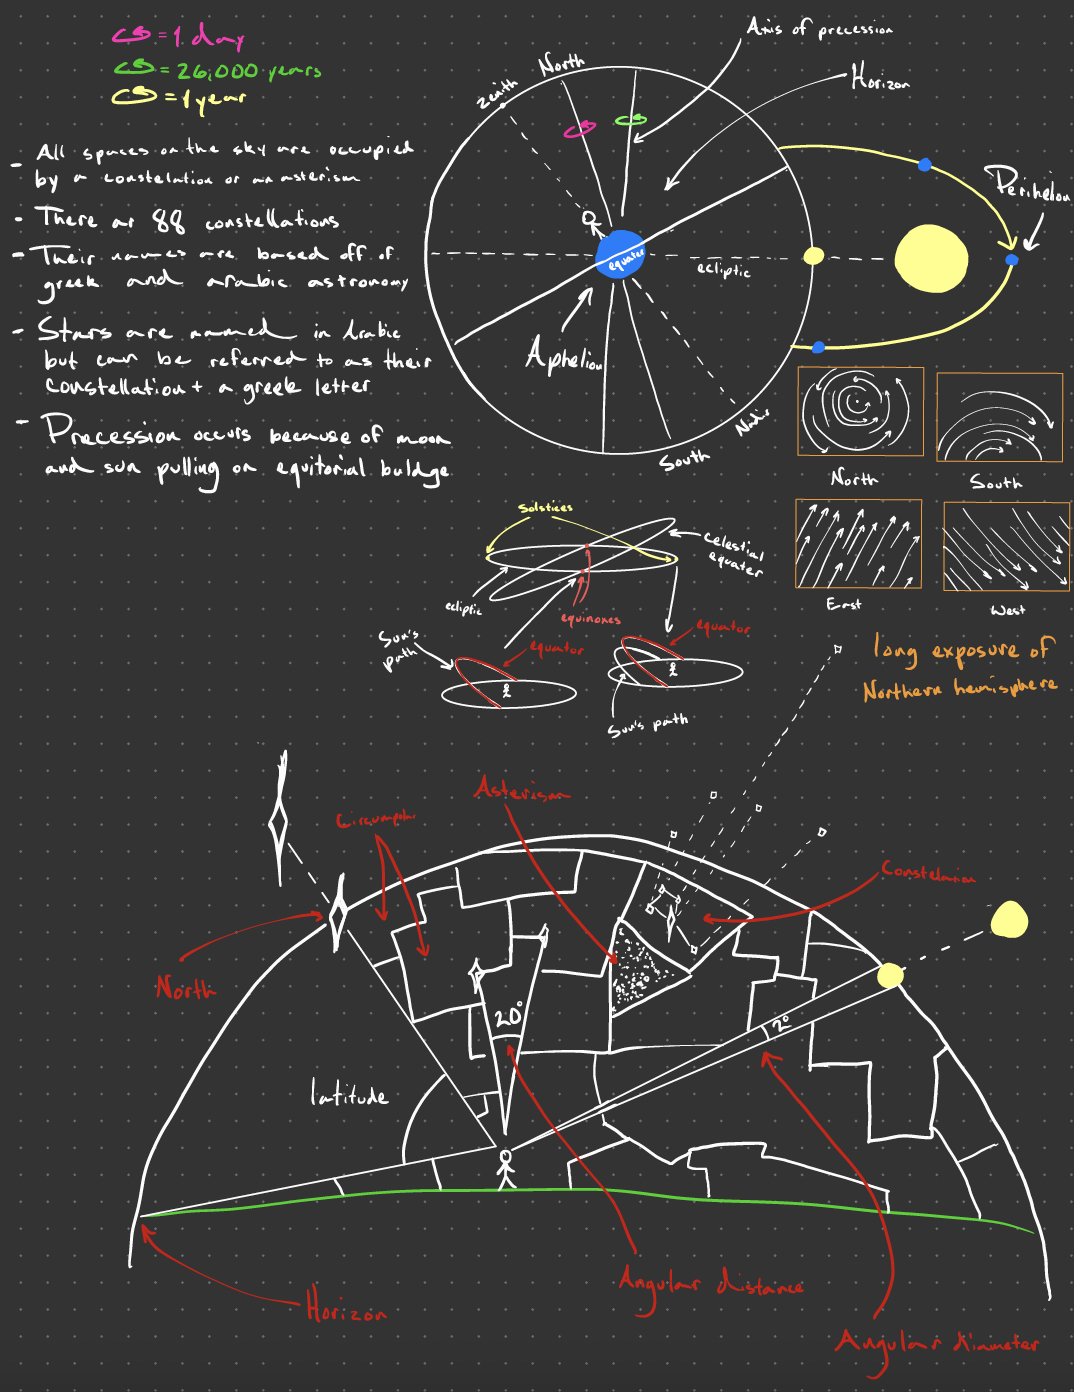 = 1 day
= 26,000 years
= 1 year
- All spaces on the sky are occupied
by a constelation or an asterism
- There ar 88 constellations
- Their names are based off of
greek and arabic astronomy
- Stars are named in Arabic
but can be referred to as their
constellation + a greek letter
- Precession occurs because of moon
and sun pulling on equitorial buldge
Axis of precession
North
Zenith
Horizon
Perihelion
equator
ecliptic
Aphelion
Nadir
South
North
South
East
West
long exposure of
Northern hemisphere
Solstices
celestial
equator
ecliptic
equinoxes
Sun's
path
equator
equator
Sun's path
Asterism
Circumpolar
Constelation
North
20°
2°
latitude
Horizon
Angular distance
Angular diameter